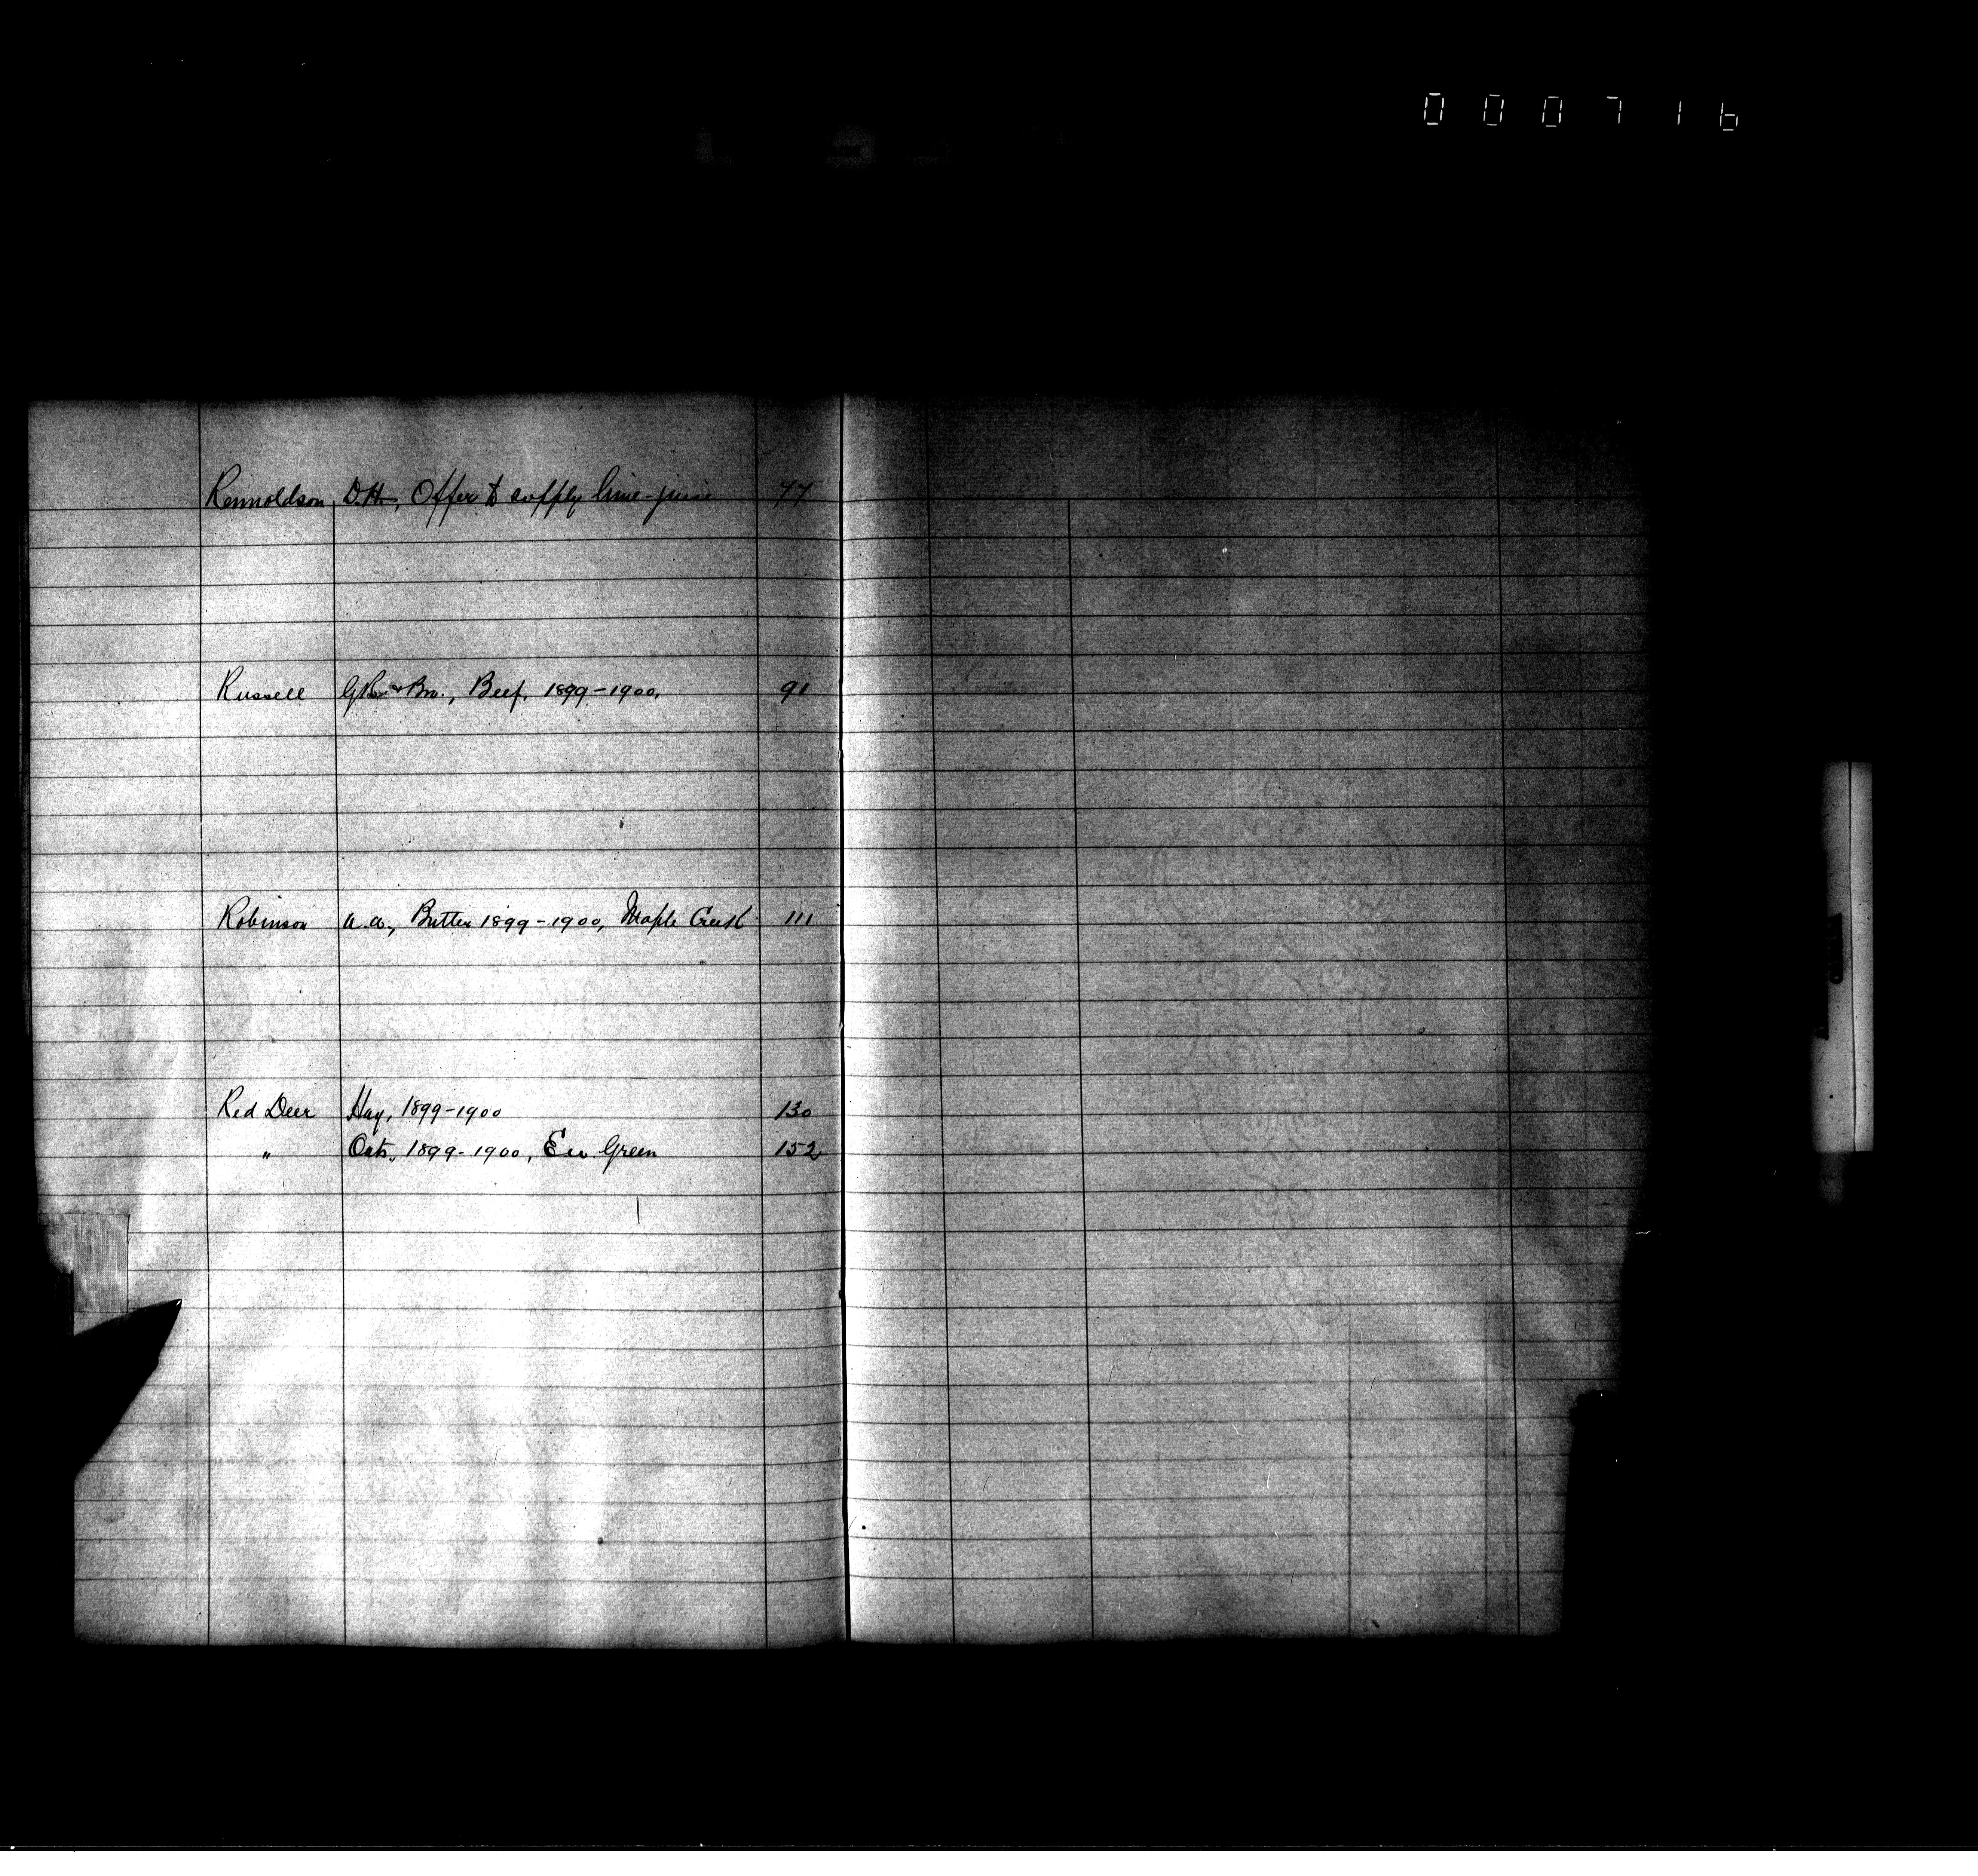 0 0 0 7 1 6
Rennoldson, D.H., Offer to supply lime-juice 77
Russell G.R. & Bro., Beef, 1899-1900, 91
Robinson A.A., Butter 1899-1900, Maple Creek 111
Red Deer Hay, 1899-1900 130
" Oats, 1899-1900, Green 152